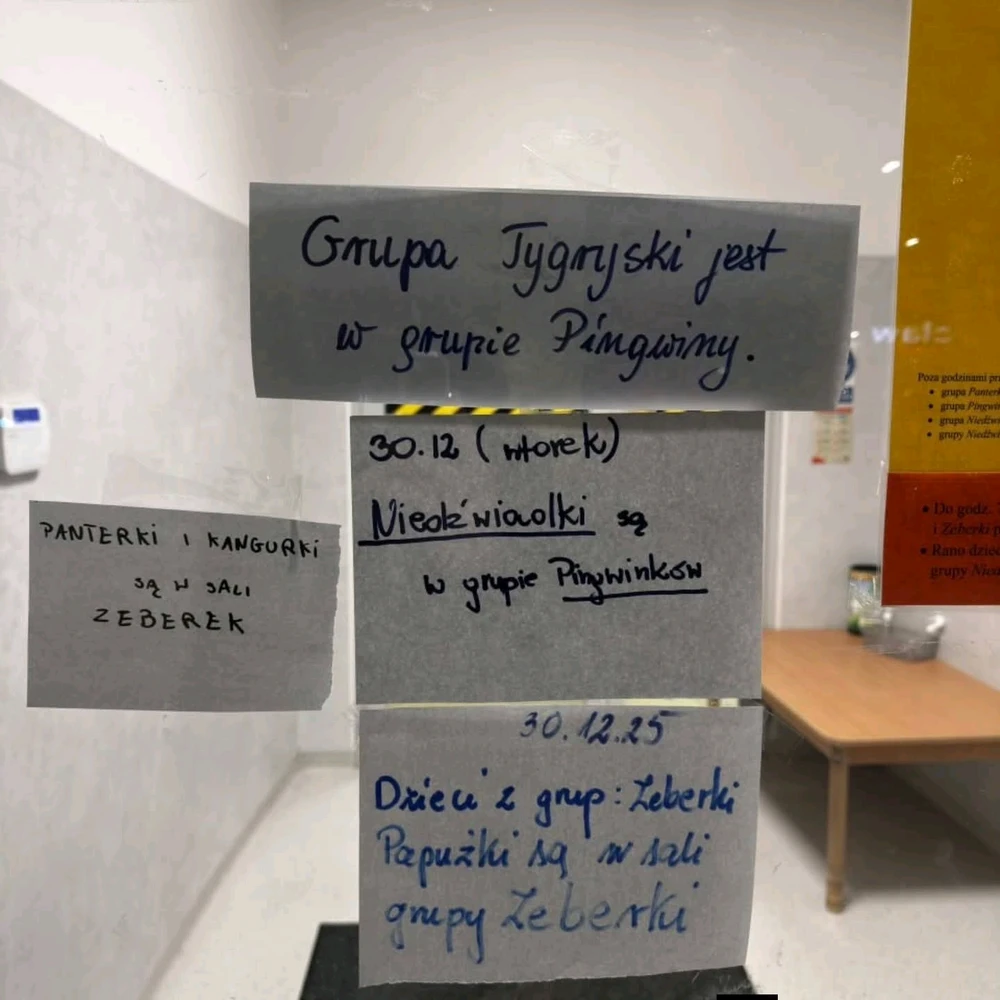 Grupa Tygryski jest
w grupie Pingwiny.
30.12 (wtorek)
Niedźwiadki są
w grupie Pingwinków
PANTERKI I KANGURKI
SĄ W SALI
ZEBEREK
30.12.25
Dzieci z grup: Zeberki
Papużki są w sali
grupy Zeberki
Poza godzinami
• grupa
• grupa
• grupa
• grupy
• Do godz.
i Zeberki
• Rano
grupy